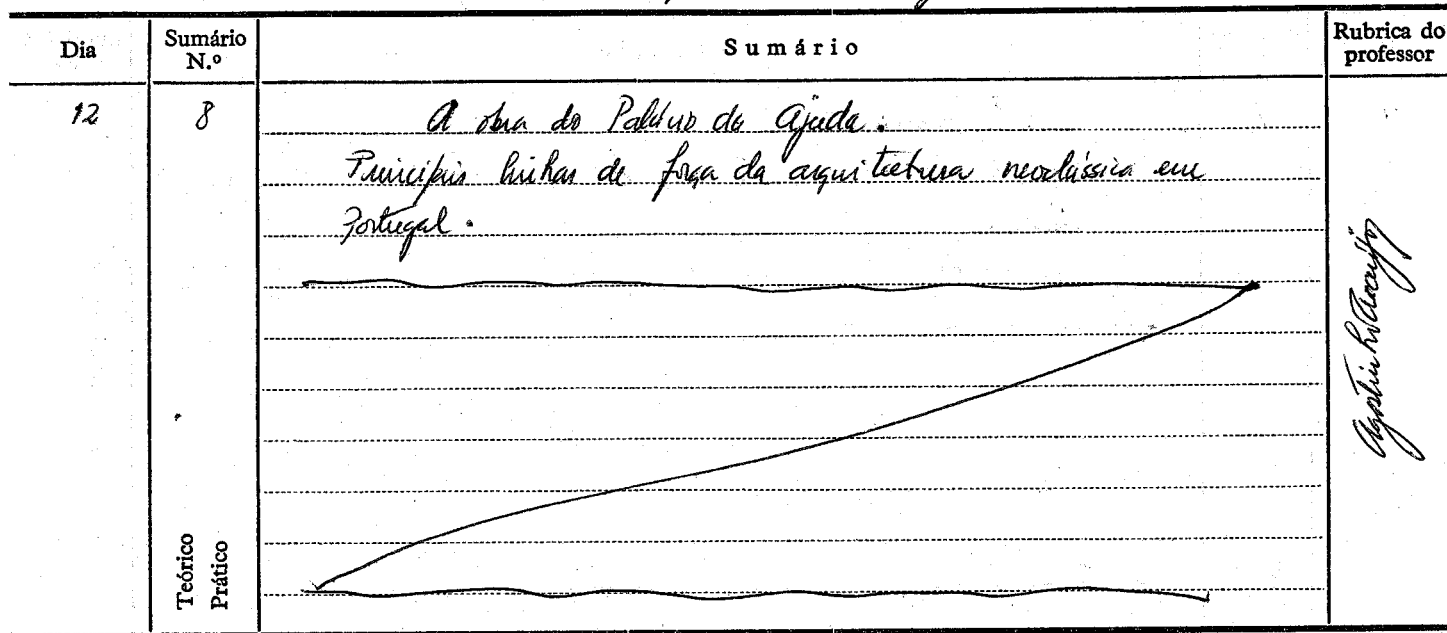 Dia
Sumário N.º
Sumário
Rubrica do professor
12
8
A obra do Palácio da Ajuda.
Principais linhas de força da arquitectura neoclássica em
Portugal.
Agostinho Araújo
Teórico
Prático